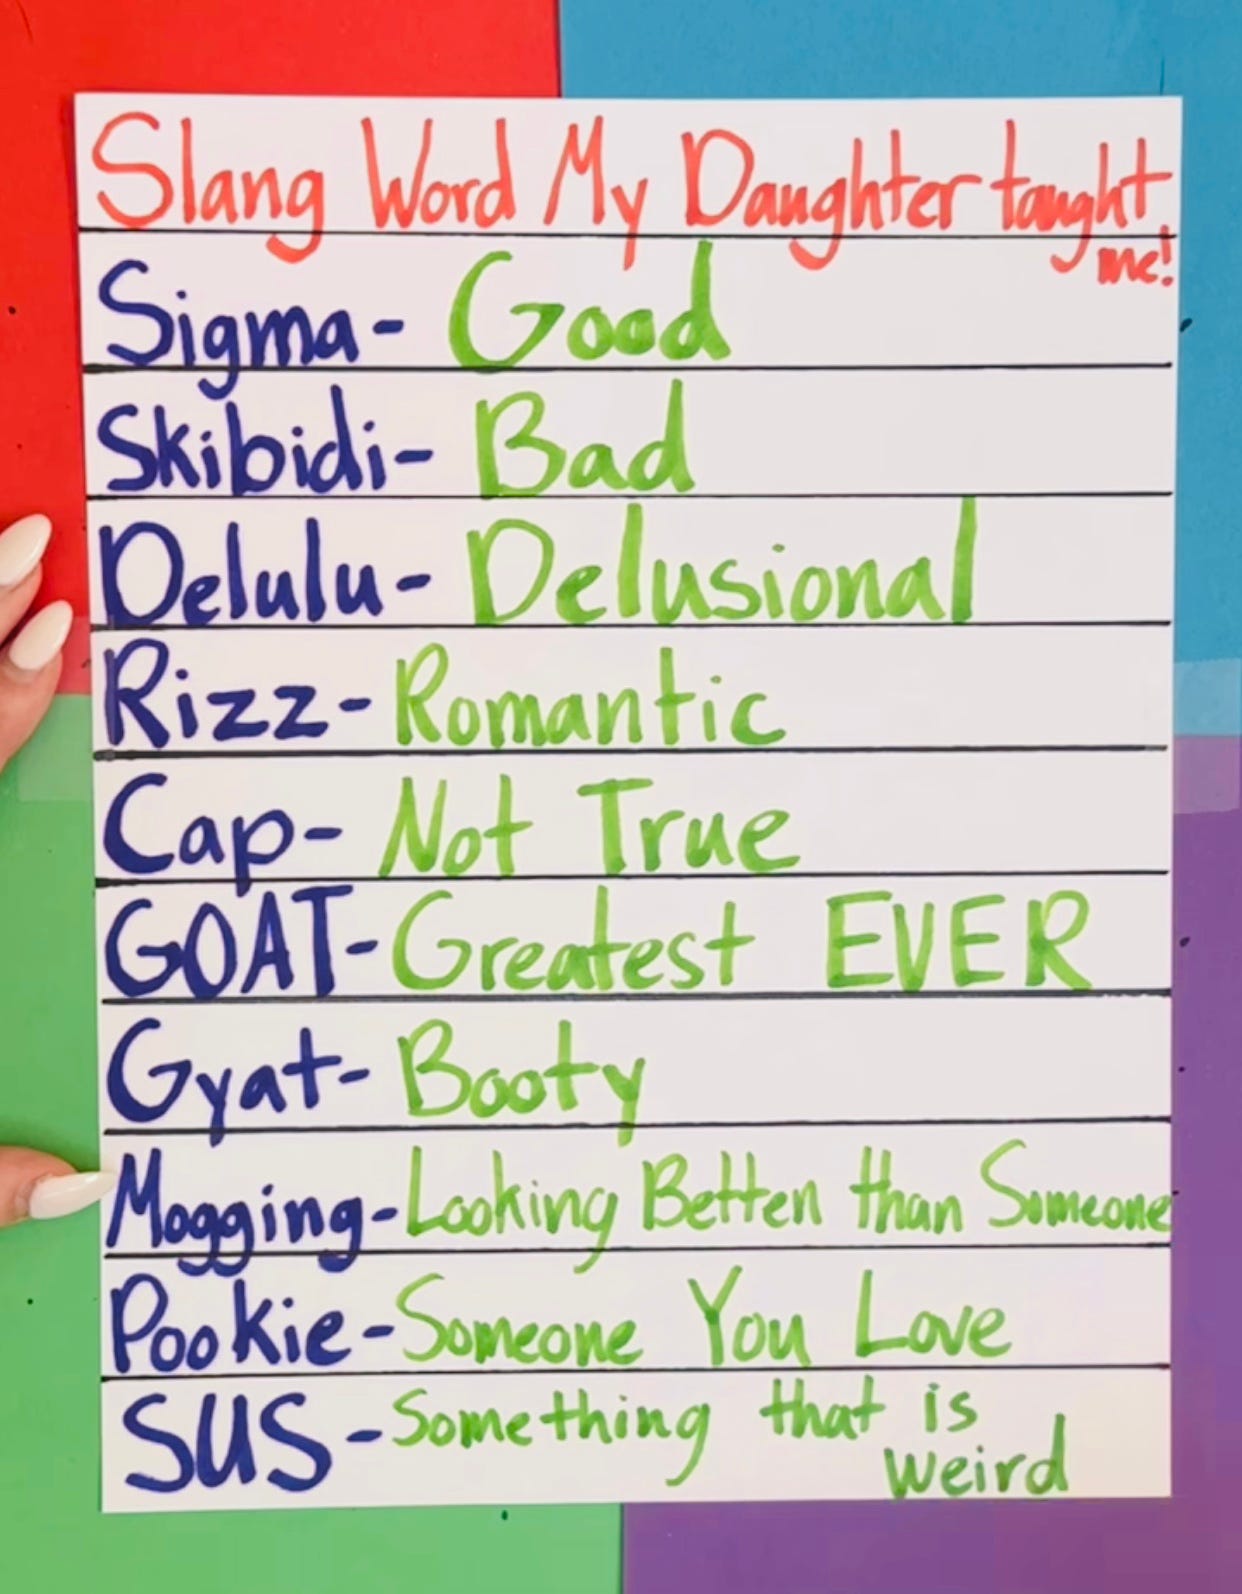 Slang Word My Daughter taught
me!
Sigma- Good
Skibidi- Bad
Delulu- Delusional
Rizz- Romantic
Cap- Not True
GOAT- Greatest EVER
Gyat- Booty
Mogging- Looking Better than Someone
Pookie- Someone You Love
SUS - Something that is
weird